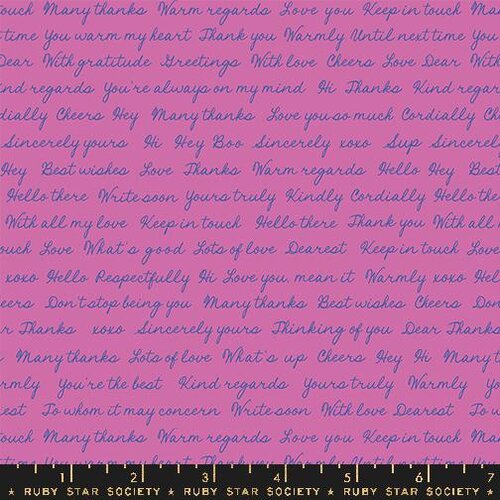 touch Many thanks Warm regards Love you Keep in touch Many
time You warm my heart Thank you Warmly Until next time You
Dear With gratitude Greetings With love Cheers Love Dear With
Kind regards You're always on my mind Hi Thanks Kind regards
dially Cheers Hey Many thanks Love you so much Cordially Ch
Sincerely yours Hi Hey Boo Sincerely xoxo Sup Sincerely
Hey Best wishes Love Thanks Warm regards Hello Hey Best
Hello there Write soon Yours truly Kindly Cordially Hello the
With all my love Keep in touch Hello there Thank you With all
ouch Love What's good Lots of love Dearest Keep in touch Love
xoxo Hello Respectfully Hi Love you, mean it Warmly xoxo Hel
eers Don't stop being you Many thanks Best wishes Cheers Don
r Thanks xoxo Sincerely yours Thinking of you Dear Thanks
Many thanks Lots of love What's up Cheers Hey Hi Many t
rmly You're the best Kind regards Yours truly Warmly Yo
est To whom it may concern Write soon With love Dearest To w
touch Many thanks Warm regards Love you Keep in touch Many
time You warm my heart Thank you Warmly Until next time You
1 2 3 4 5 6 7
RUBY STAR SOCIETY ★ RUBY STAR SOCIETY ★ RUBY STAR SOCIETY